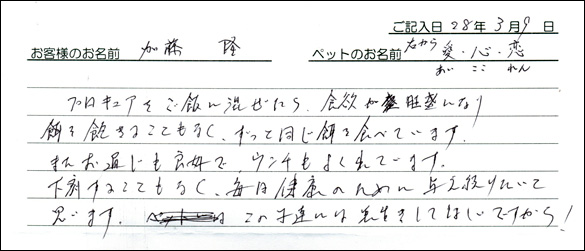 ご記入日 28年 3月 9 日
お客様のお名前 加藤 隆 ペットのお名前 右から 愛・心・恋
あい ここ れん
プロキュアをご飯に混ぜたら、食欲が旺盛になり
餌を飽きることもなく、ずっと同じ餌を食べています。
またお通じも良好で、ウンチもよくれています。
下痢することもなく、毎日健康のために与え続けたいと
思います。 この子達には長生きしてほしいですから!